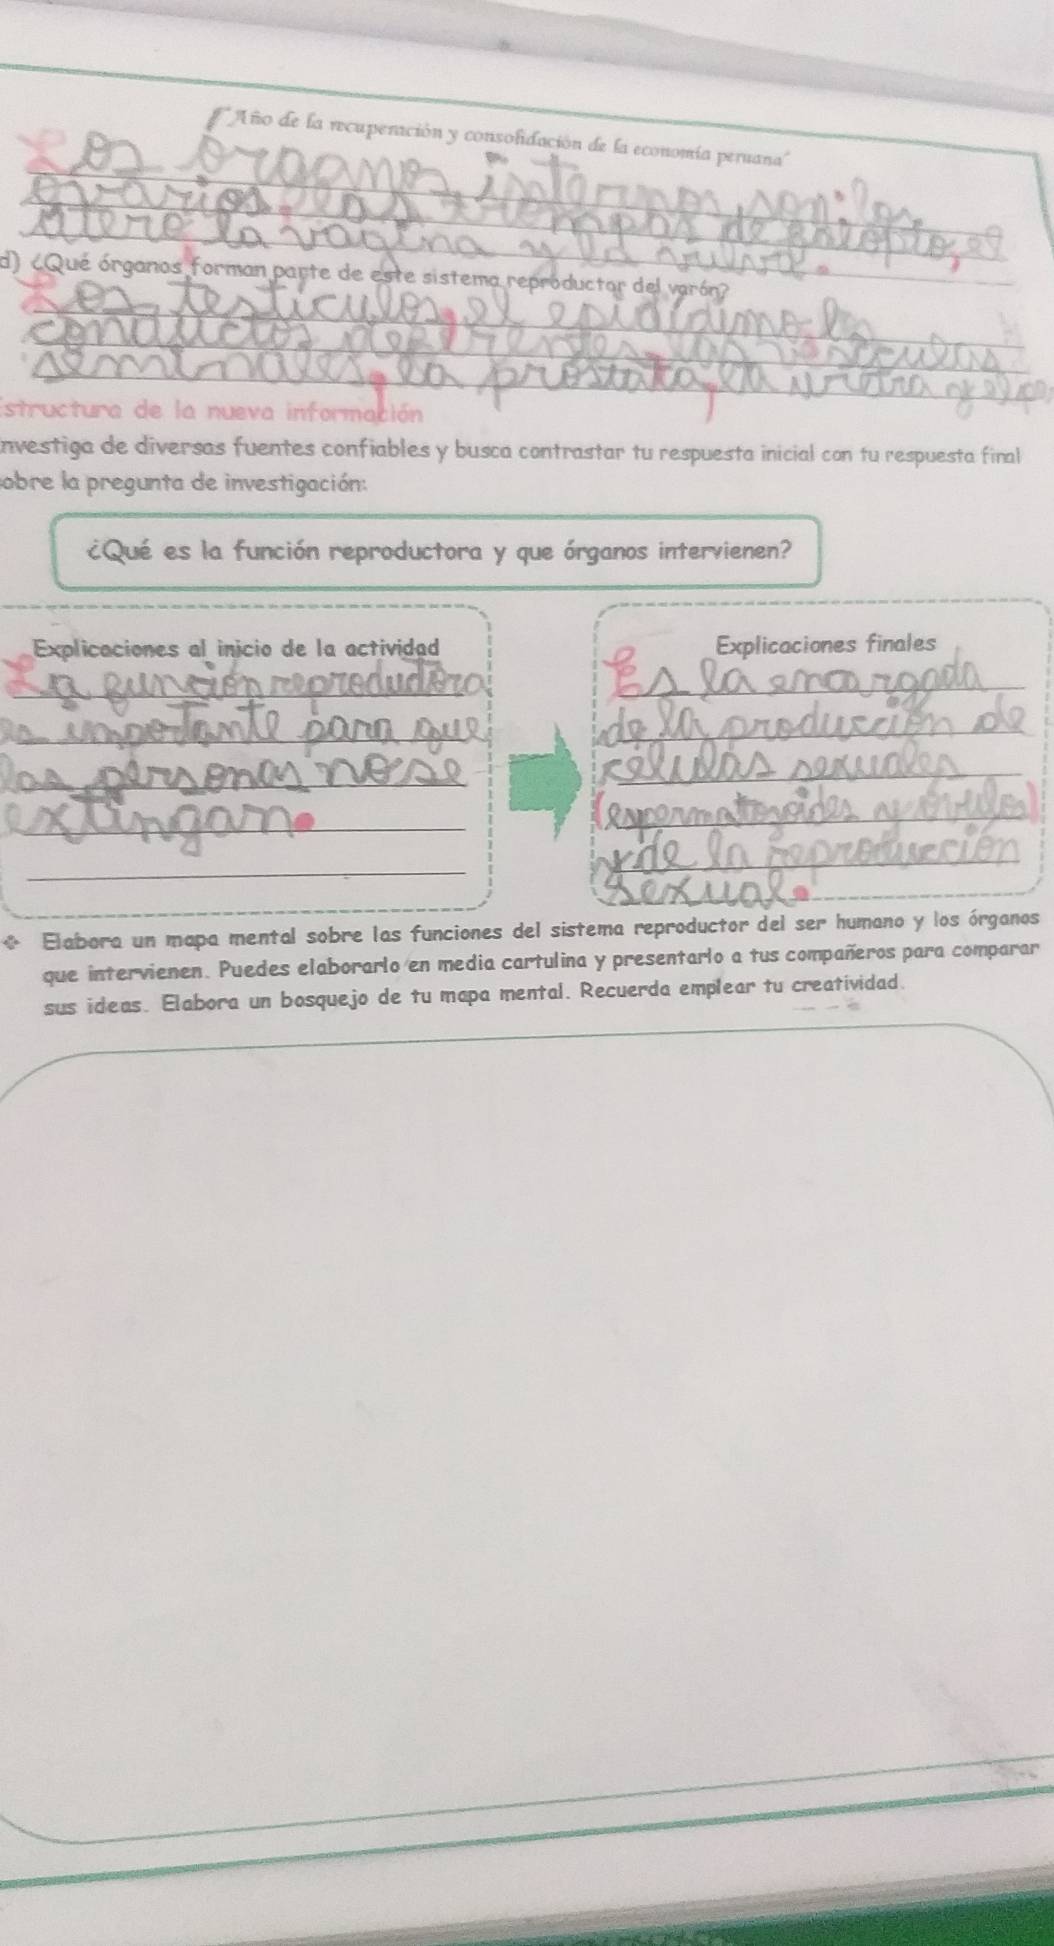 "Año de la recuperación y consolidación de la economía peruana"
Los organos internos son: los
ovarios, las trompas de falopio, el
utero la vagina y la vulva.
d) ¿Qué órganos forman parte de este sistema reproductor del varón?
Los testiculos, el epididimo los
conductos deferentes, las vesiculas
seminales, la prostata, la uretra y el pe
Estructura de la nueva información
Investiga de diversas fuentes confiables y busca contrastar tu respuesta inicial con tu respuesta final
sobre la pregunta de investigación:
¿Qué es la función reproductora y que órganos intervienen?
Explicaciones al inicio de la actividad
La función reproductora
es importante para que
las personas no se
extingan.
Explicaciones finales
Es la encargada
de la producción de
celulas sexuales
(espermatozoides y ovulos)
y de la reproducción
sexual.
❖ Elabora un mapa mental sobre las funciones del sistema reproductor del ser humano y los órganos
que intervienen. Puedes elaborarlo en media cartulina y presentarlo a tus compañeros para comparar
sus ideas. Elabora un bosquejo de tu mapa mental. Recuerda emplear tu creatividad.